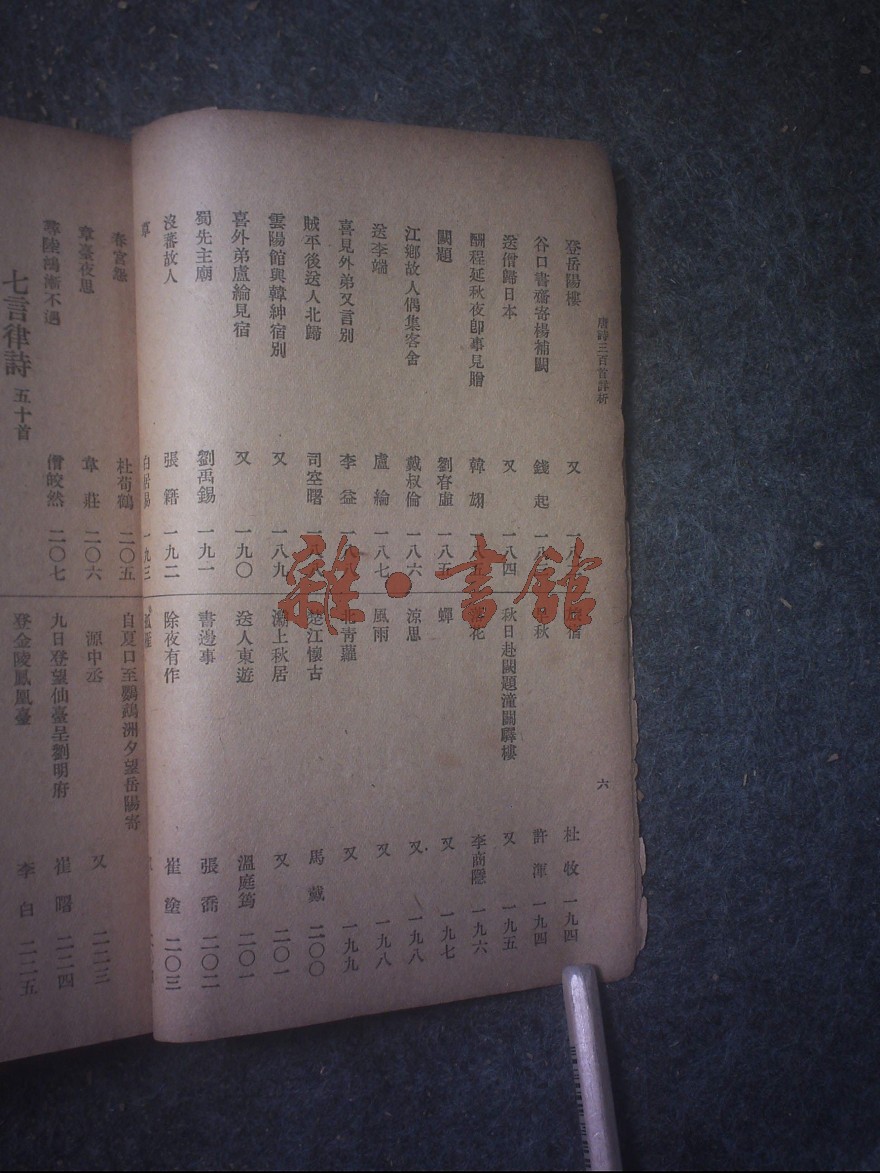 唐詩三百首詳析
六
登岳陽樓 又 一八
谷口書齋寄楊補闕 錢起 一八
送僧歸日本 又 一八四
酬程延秋夜卽事見贈 韓翃 一八五
闕題 劉眘虛 一八五
江鄉故人偶集客舍 戴叔倫 一八六
送李端 盧綸 一八七
喜見外弟又言別 李益 一八
賊平後送人北歸 司空曙 一八
雲陽館與韓紳宿別 又 一八九
喜外弟盧綸見宿 又 一九〇
蜀先主廟 劉禹錫 一九一
沒蕃故人 張籍 一九二
草 白居易 一九三
杜牧 一九四
秋 許渾 一九四
秋日赴闕題潼關驛樓 又 一九五
花 李商隱 一九六
蟬 又 一九七
涼思 又 一九八
風雨 又 一九八
北青蘿 又 一九九
楚江懷古 馬戴 二〇〇
灞上秋居 又 二〇一
送人東遊 溫庭筠 二〇一
書邊事 張喬 二〇二
除夜有作 崔塗 二〇三
春宮怨 杜荀鶴 二〇五
章臺夜思 韋莊 二〇六
尋陸鴻漸不遇 僧皎然 二〇七
七言律詩 五十首
自夏口至鸚鵡洲夕望岳陽寄
源中丞 又 二二三
九日登望仙臺呈劉明府 崔曙 二二四
登金陵鳳凰臺 李白 二二五
雜·書館